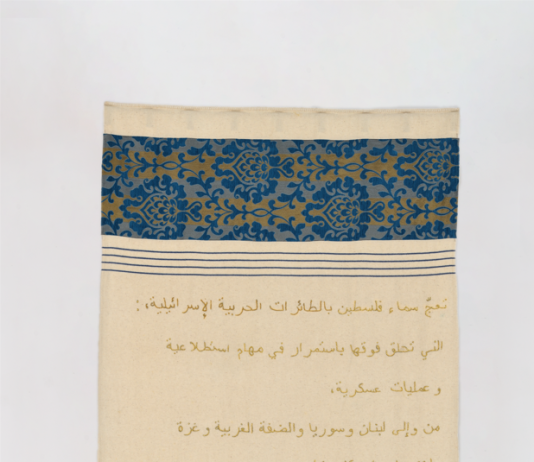 تعجّ سماء فلسطين بالطائرات الحربية الإسرائيلية،:
التي تحلق فوقها باستمرار في مهام استطلاعية
و عمليات عسكرية،
من وإلى لبنان وسوريا والضفة الغربية و غزة